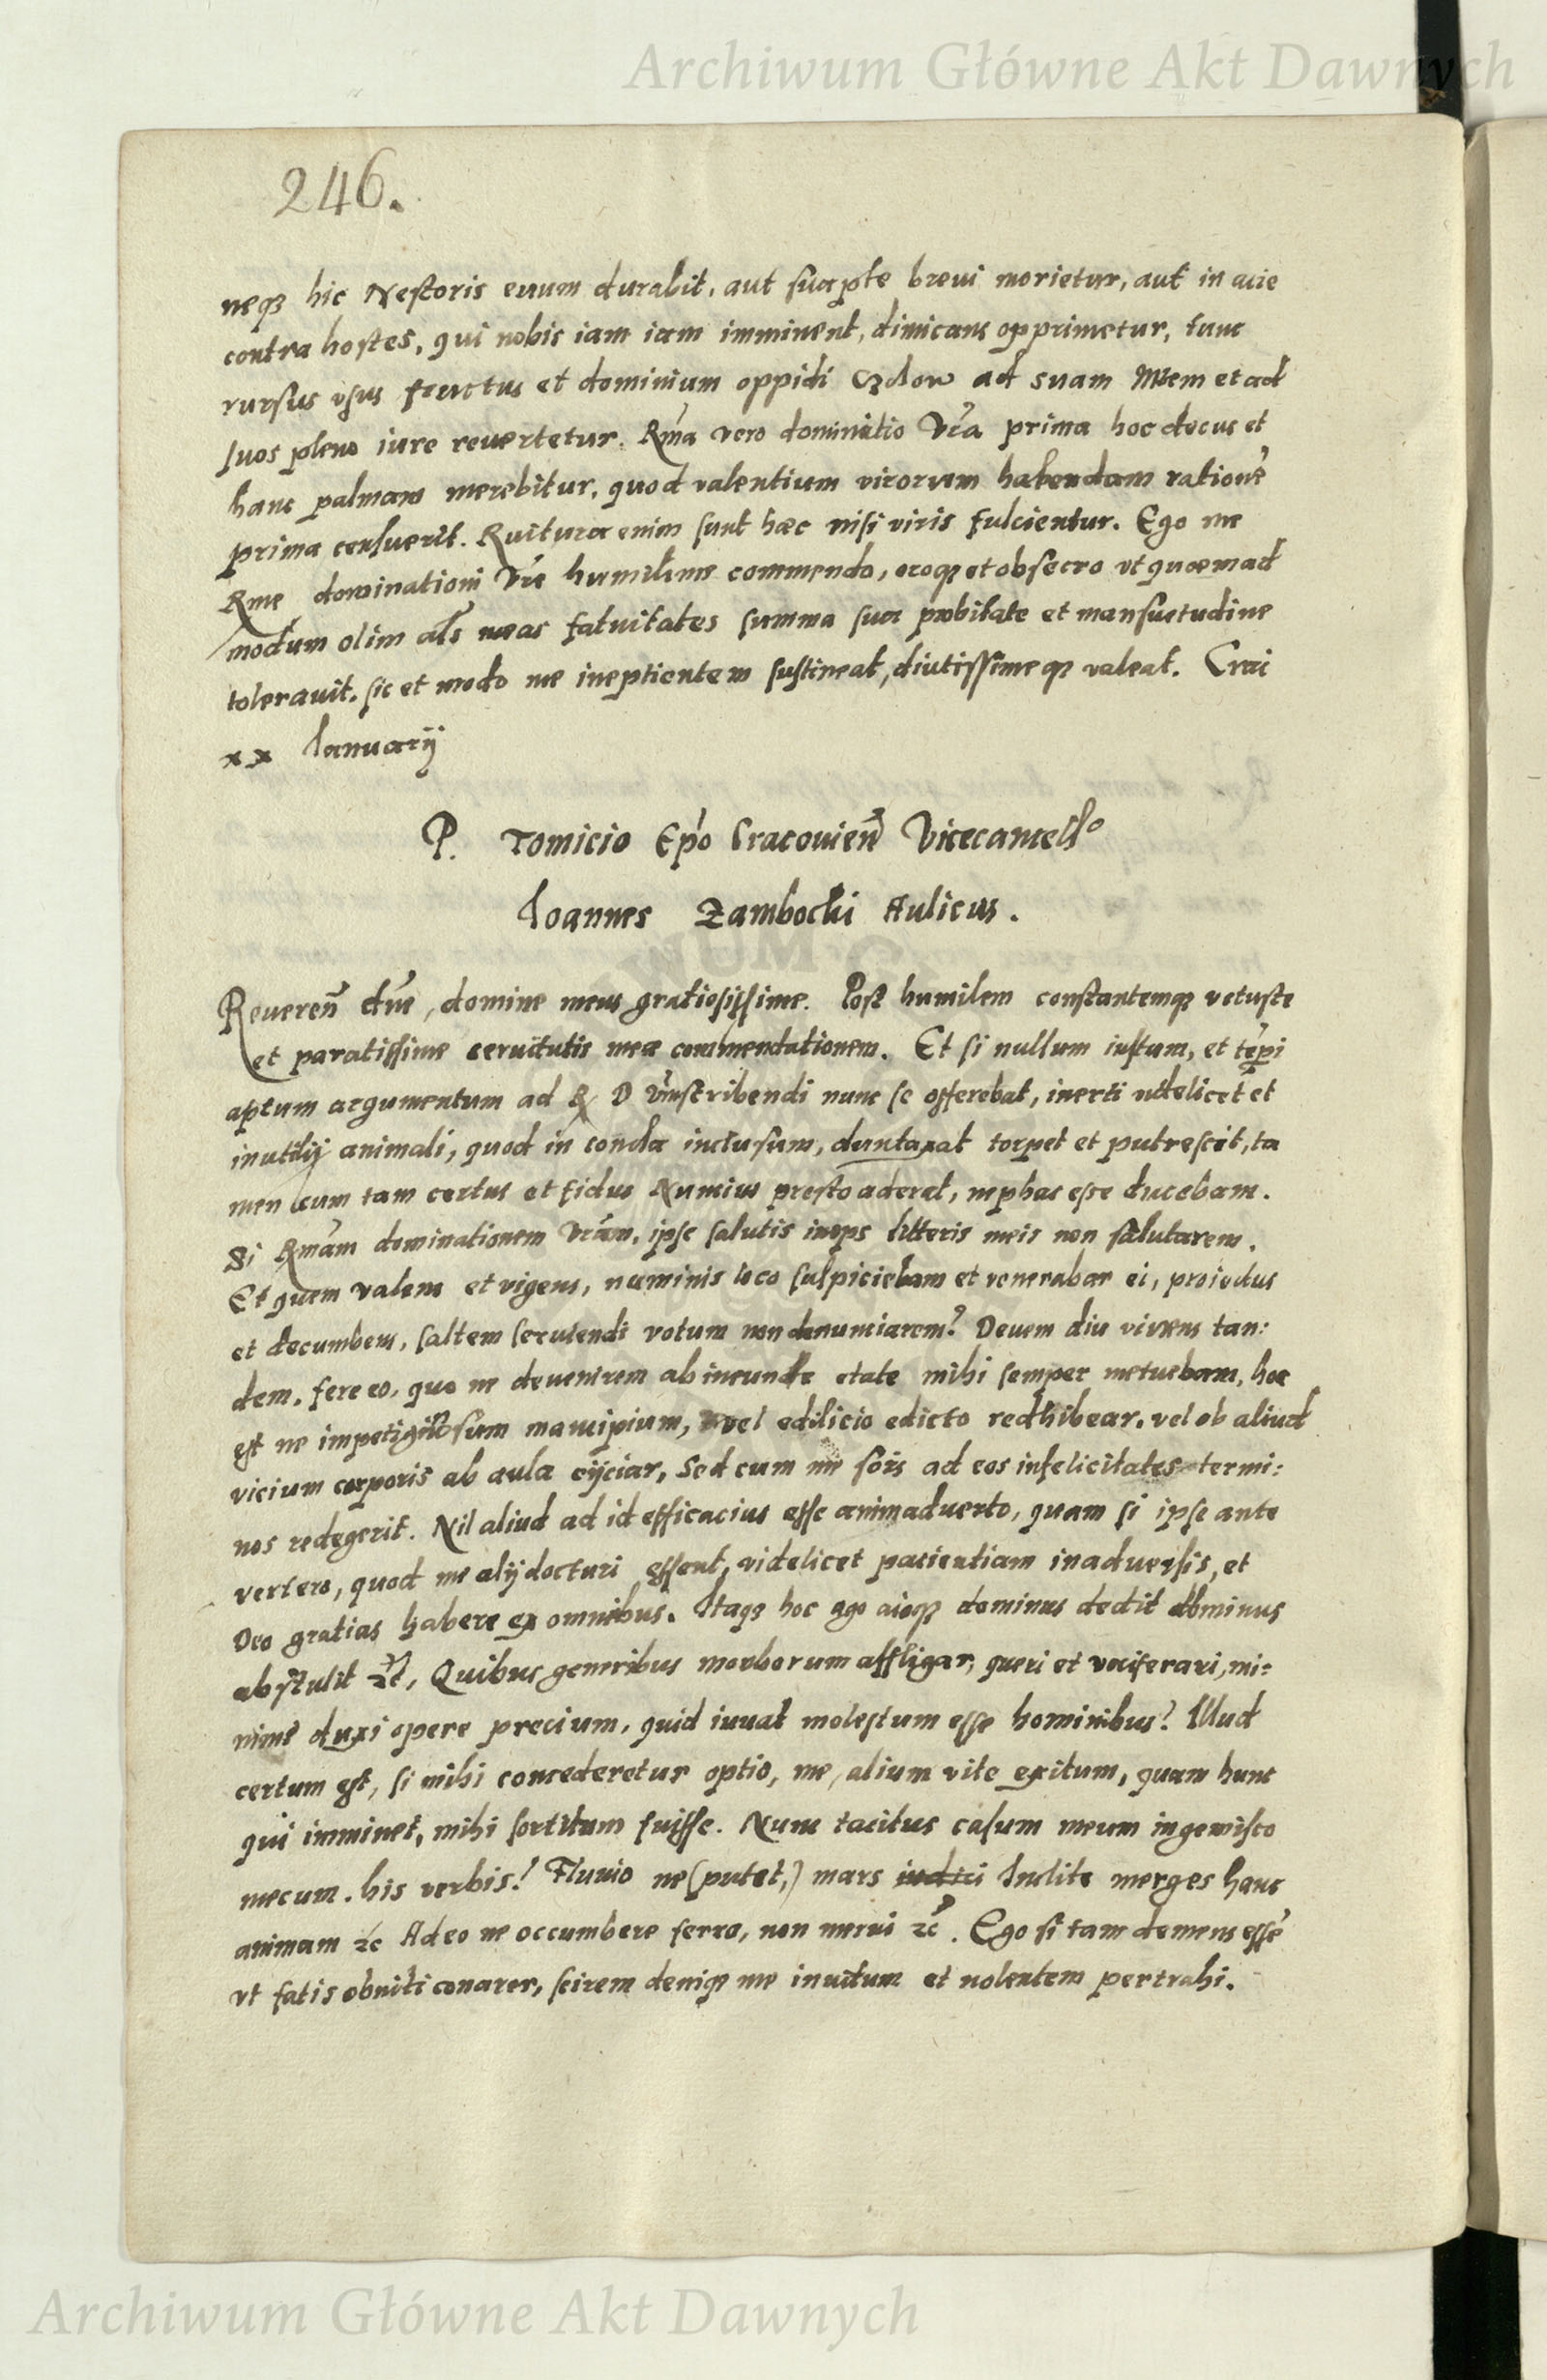 Archiwum Główne Akt Dawnych
246.
neqȝ hic Nestoris euum durabit, aut suapte breui morietur, aut in acie
contra hostes, qui nobis iam iam imminent, dimicans opprimetur, tunc
rursus vsus fructus et dominium oppidi ad suam Mtem et ad
suos pleno iure reuertetur. Rma vero dominatio Vra prima hoc decus et
hanc palmam merebitur, quod valentium virorum habendam rationẽ
prima censuerit. Ruitura enim sunt hæc nisi viris fulcientur. Ego me
Rme dominationi Vre humilime commendo, oroqȝ et obsecro vt quæmad
modum olim als meas fatuitates summa sua probitate et mansuetudine
tolerauit, sic et modo me ineptientem sustineat, diutissimeqȝ valeat. Crai
xx Ianuarij
P. Tomicio Epo Cracouień Vicecancell°
Ioannes Zambocki Aulicus.
Reuereñ dñe, domine meus gratiosissime. Post humilem constantemqȝ vetuste
et paratissime seruitutis meæ commendationem. Et si nullum iustum, et tẽpi
aptum argumentum ad R D Vrm scribendi nunc se offerebat, inerti videlicet et
inutilij animali, quod in condla inclusum, duntaxat torpet et putrescit, ta
men cum tam certus et fidus Nuncius presto aderet, nephas esse ducebam.
Si Rmam dominationem Vram, ipse salutis inops litteris meis non salutarem.
Et quem valens et vigens, numinis loco suspiciebam et venerabar ei, proiectus
et decumbens, saltem seruiendi votum non denunciarem? Deueni diu viuens tan:
dem, fere eo, quo ne deuenirem ab ineunte etate mihi semper metuebam, hoc
est ne impetiginosum mancipium, vel edilicio edicto redhibear, vel ob aliud
vicium corporis ab aula eijciar, Sed cum me sors ad eos infelicitates termi:
nos redegerit. Nil aliud ad id efficacius esse animaduerto, quam si ipse ante
vertero, quod me alij docturi essent, videlicet pacientiam in aduersis, et
Deo gratias habere ex omnibus. Itaqȝ hoc ago aioqȝ dominus dedit dominus
abstulit ꝛc, Quibus generibus morborum affligar, queri et vociferari, mi:
nimẽ duxi opere precium, quid iuuat molestum esse hominibus? Illud
certum est, si mihi concederetur optio, me, alium vite exitum, quam hunc
qui imminet, mihi sortitum fuisse. Nunc tacitus casum meum ingemisco
mecum. his verbis! Fluuio ne (putet,) mars Inclite merges hanc
animam ꝛc Adeo ne occumbere ferro, non merui ꝛc. Ego si tam demens essẽ
vt fatis obniti conarer, scirem deniqȝ me inuitum et nolentem pertrahi.
Archiwum Główne Akt Dawnych